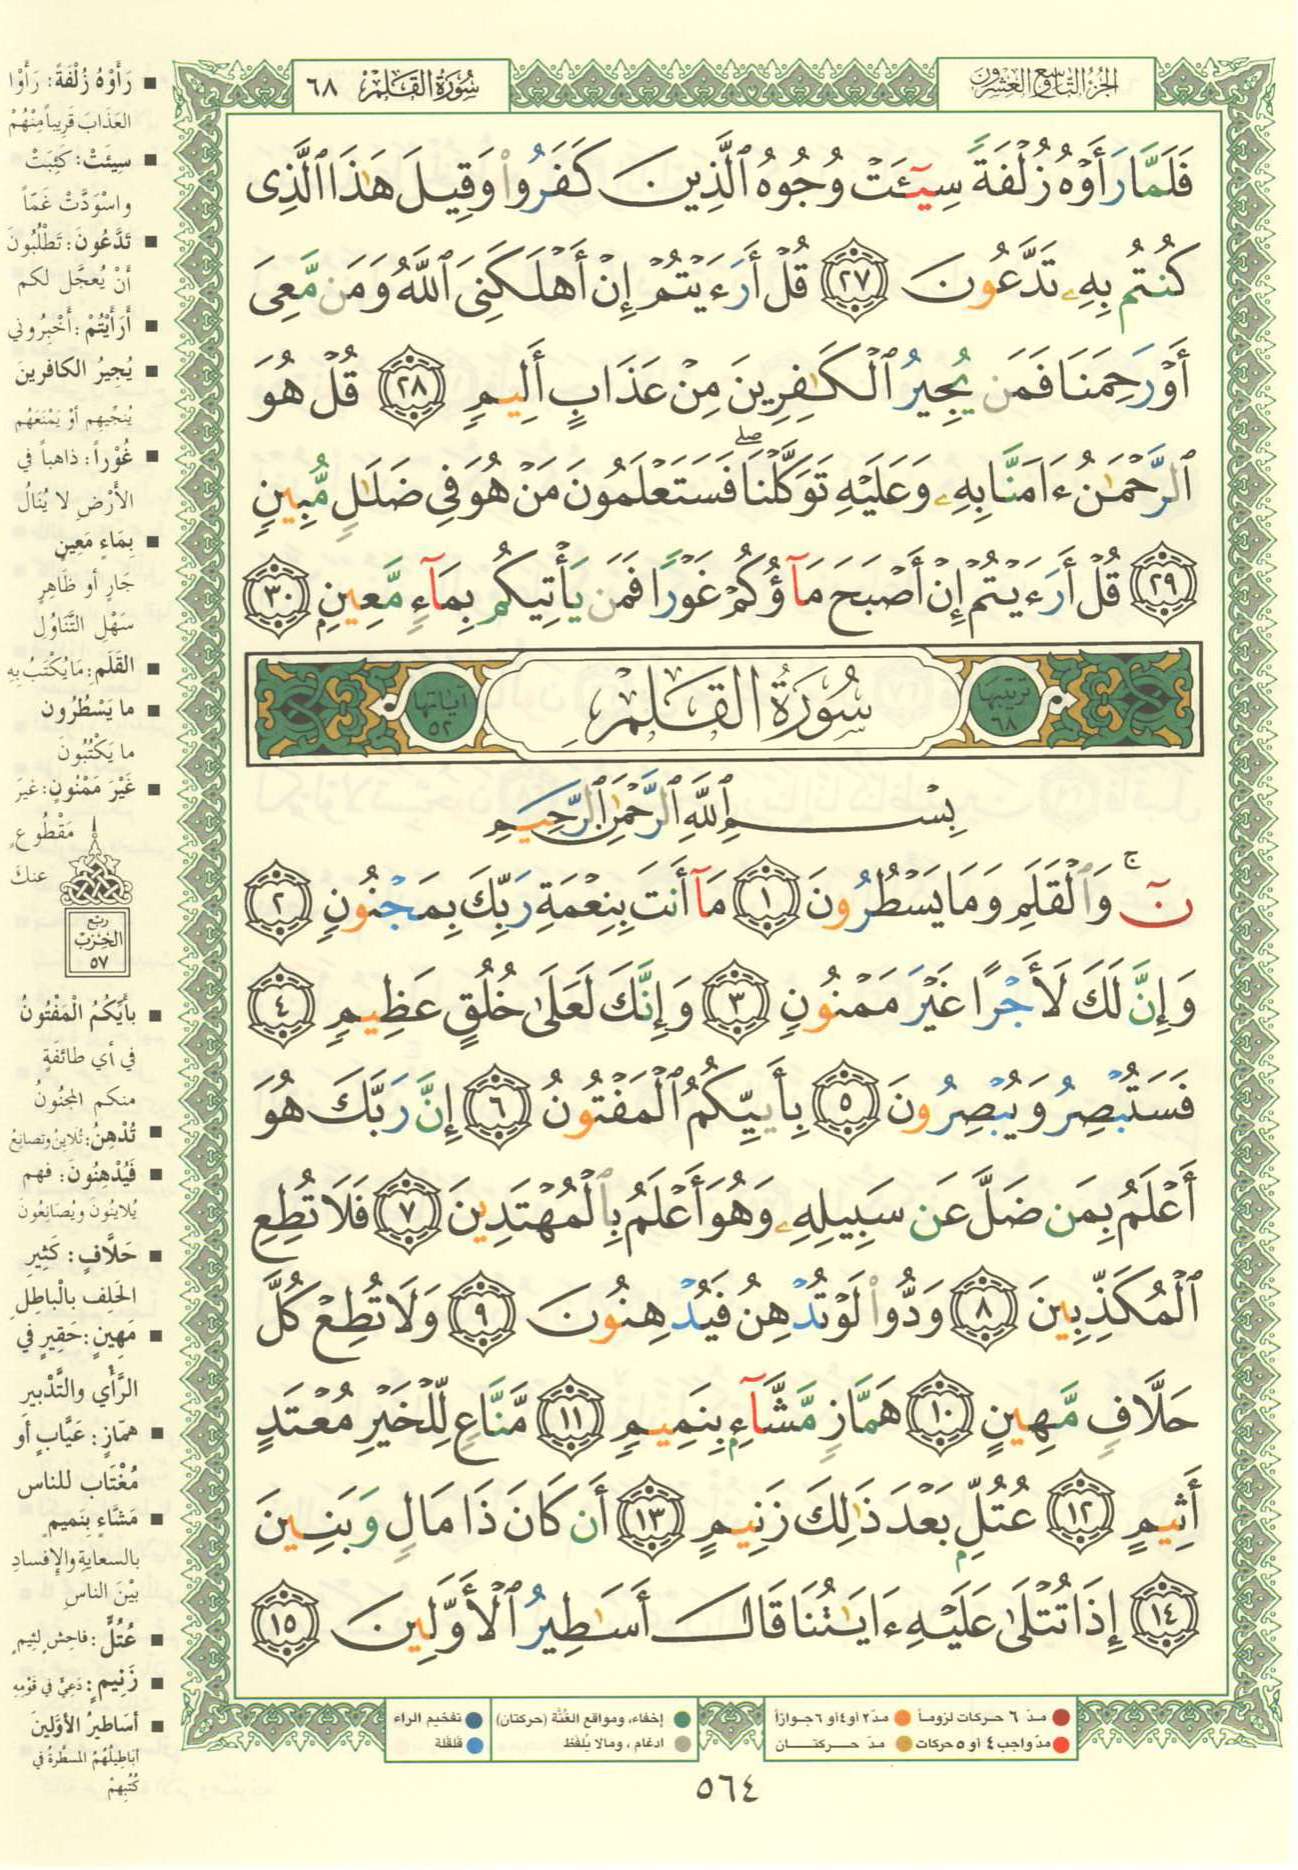 الجزء التاسع والعشرون
سورة القلم ٦٨
فَلَمَّا رَأَوْهُ زُلْفَةً سِيٓـَٔتْ وُجُوهُ ٱلَّذِينَ كَفَرُوا۟ وَقِيلَ هَٰذَا ٱلَّذِى
كُنتُم بِهِۦ تَدَّعُونَ ٢٧ قُلْ أَرَءَيْتُمْ إِنْ أَهْلَكَنِىَ ٱللَّهُ وَمَن مَّعِىَ
أَوْ رَحِمَنَا فَمَن يُجِيرُ ٱلْكَٰفِرِينَ مِنْ عَذَابٍ أَلِيمٍ ٢٨ قُلْ هُوَ
ٱلرَّحْمَٰنُ ءَامَنَّا بِهِۦ وَعَلَيْهِ تَوَكَّلْنَا ۖ فَسَتَعْلَمُونَ مَنْ هُوَ فِى ضَلَٰلٍ مُّبِينٍ
٢٩ قُلْ أَرَءَيْتُمْ إِنْ أَصْبَحَ مَآؤُكُمْ غَوْرًا فَمَن يَأْتِيكُم بِمَآءٍ مَّعِينٍۭ ٣٠
ترتيبها ٦٨ سُورَةُ القَلَمِ آياتها ٥٢
بِسْمِ ٱللَّهِ ٱلرَّحْمَٰنِ ٱلرَّحِيمِ
نٓ ۚ وَٱلْقَلَمِ وَمَا يَسْطُرُونَ ١ مَآ أَنتَ بِنِعْمَةِ رَبِّكَ بِمَجْنُونٍ ٢
وَإِنَّ لَكَ لَأَجْرًا غَيْرَ مَمْنُونٍ ٣ وَإِنَّكَ لَعَلَىٰ خُلُقٍ عَظِيمٍ ٤
فَسَتُبْصِرُ وَيُبْصِرُونَ ٥ بِأَييِّكُمُ ٱلْمَفْتُونُ ٦ إِنَّ رَبَّكَ هُوَ
أَعْلَمُ بِمَن ضَلَّ عَن سَبِيلِهِۦ وَهُوَ أَعْلَمُ بِٱلْمُهْتَدِينَ ٧ فَلَا تُطِعِ
ٱلْمُكَذِّبِينَ ٨ وَدُّوا۟ لَوْ تُدْهِنُ فَيُدْهِنُونَ ٩ وَلَا تُطِعْ كُلَّ
حَلَّافٍ مَّهِينٍ ١٠ هَمَّازٍ مَّشَّآءٍۭ بِنَمِيمٍ ١١ مَّنَّاعٍ لِّلْخَيْرِ مُعْتَدٍ
أَثِيمٍ ١٢ عُتُلٍّۭ بَعْدَ ذَٰلِكَ زَنِيمٍ ١٣ أَن كَانَ ذَا مَالٍ وَبَنِينَ
١٤ إِذَا تُتْلَىٰ عَلَيْهِ ءَايَٰتُنَا قَالَ أَسَٰطِيرُ ٱلْأَوَّلِينَ ١٥
رَأَوْهُ زُلْفَةً: رَأَوْا
العَذَابَ قَرِيباً مِنْهُمْ
سِيئَتْ: كَئِبَتْ
واسْوَدَّتْ غَمّاً
تَدَّعُونَ: تَطْلُبُونَ
أَنْ يُعجَّلَ لكم
أَرَأَيْتُمْ: أَخْبِرُوني
يُجِيرُ الكافرين
يُنجِّيهم أوْ يَمْنَعُهم
غَوْراً: ذاهباً في
الأرْضِ لا يُنَالُ
بِمَاءٍ مَعِينٍ
جَارٍ أو ظَاهِرٍ
سَهْلِ التَّنَاوُلِ
القَلَمِ: مَا يُكْتَبُ بِهِ
ما يَسْطُرُون
ما يَكْتُبُونَ
غَيْرَ مَمْنُونٍ: غيرَ
مَقْطُوعٍ
عنكَ
ربع
الحزب
٥٧
بأيِّكُمُ الْمَفْتُونُ
في أي طائفةٍ
منكم المجْنُونُ
تُدْهِنُ: تُلايِنُ وتُصانِعُ
فَيُدْهِنُونَ: فهم
يُلايِنُونَ ويُصَانِعُونَ
حَلَّافٍ: كَثِيرِ
الحَلِف بالْباطِلِ
مَهِينٍ: حَقِيرٍ في
الرَّأْي والتَّدْبير
همَّازٍ: عَيَّابٍ أو
مُغْتَاب للناس
مَشَّاءٍ بِنَميمٍ
بالسعايةِ والإفسادِ
بَيْنَ الناسِ
عُتُلٍّ: فاحِشٍ لئيمٍ
زَنِيمٍ: دَعِيٍّ في قَوْمِهِ
أسَاطيرُ الأوَّلينَ
أَبَاطِيلُهُمُ المسَطَّرةُ في
كُتُبِهِمْ
مدّ ٦ حركات لزوماً مدّ ٢ أو ٤ أو ٦ جوازاً
مدّ واجب ٤ أو ٥ حركات مدّ حركتان
إخفاء، ومواقع الغُنَّة (حركتان)
ادغام، ومالا يُلفَظ
تفخيم الراء
قلقلة
٥٦٤